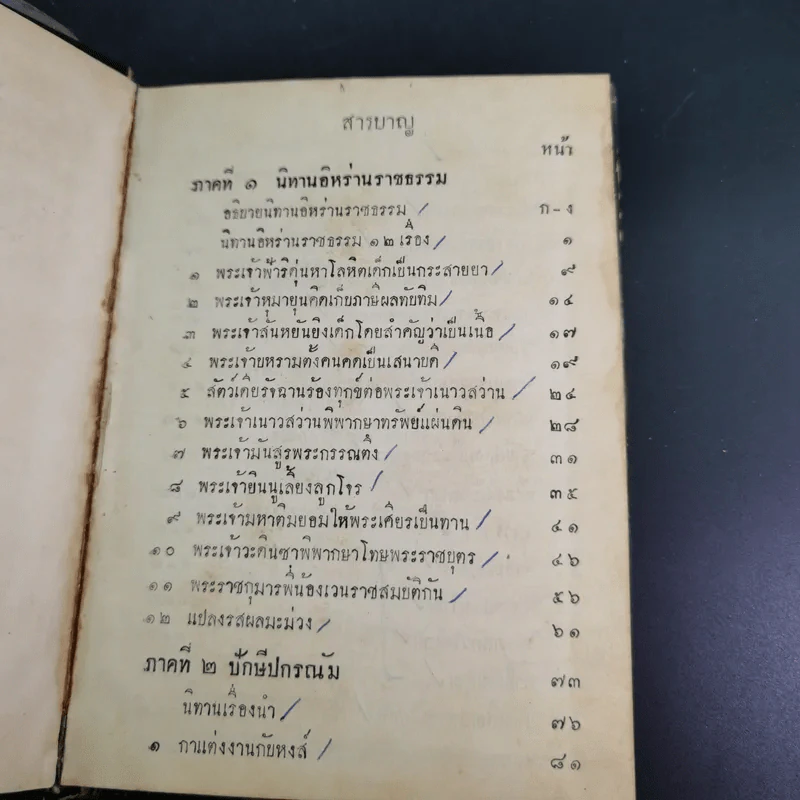 สารบาญ
หน้า
ภาคที่ ๑ นิทานอิหร่านราชธรรม
อธิบายนิทานอิหร่านราชธรรม ก-ง
นิทานอิหร่านราชธรรม ๑๒ เรื่อง ๑
๑ พระเจ้าฟาริตุ่นหาโลหิตเด็กเป็นกระสายยา ๙
๒ พระเจ้าหุมายุนคิดเก็บภาษีผลทับทิม ๑๔
๓ พระเจ้าสันหยันยิงเด็กโดยสำคัญว่าเป็นเนื้อ ๑๗
๔ พระเจ้าบหรามตั้งคนคดเป็นเสนาบดี ๑๙
๕ สัตว์เดียรัจฉานร้องทุกข์ต่อพระเจ้าเนาวสว่าน ๒๔
๖ พระเจ้าเนาวสว่านพิพากษาทรัพย์แผ่นดิน ๒๘
๗ พระเจ้ามันสูรพระกรรณตึง ๓๑
๘ พระเจ้ายินนูเลี้ยงลูกโจร ๓๕
๙ พระเจ้ามหาติมยอมให้พระเศียรเป็นทาน ๔๑
๑๐ พระเจ้าวะดินซาพิพากษาโทษพระราชบุตร ๔๖
๑๑ พระราชกุมารพี่น้องเวนราชสมบัติกัน ๕๖
๑๒ แปลงรสผลมะม่วง ๖๑
ภาคที่ ๒ ปักษีปกรณัม ๗๓
นิทานเรื่องนำ ๗๖
๑ กาแต่งงานกับหงส์ ๘๑